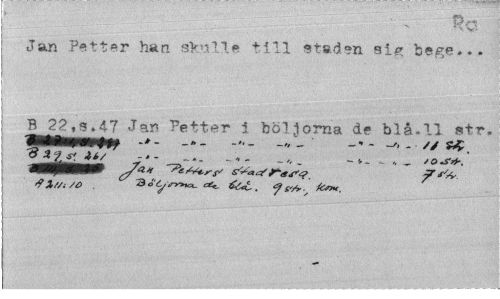 Ro
Jan Petter han skulle till staden sig bege...
B 22,s.47 Jan Petter i böljorna de blå.11 str.
-"- -"- -"- -"- -"- -"- 11 str.
B 29, s. 261 -"- -"- -"- -"- -"- -"- 10 str.
Jan Petters stadresa. 7 str.
A 211:10. Böljorna de blå. 9 str, kom.